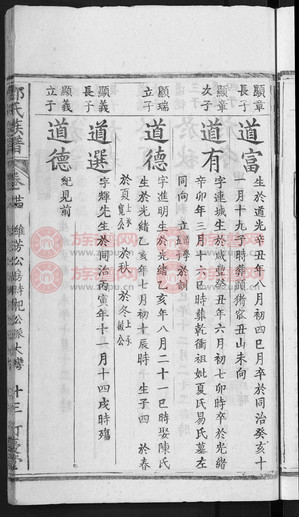 顯章長子
道富
生於道光辛丑年八月初四巳月卒於同治癸亥十
一月十九時葬頭衝窊丑山未向
顯章次子
道有
字連城生於咸豐癸丑年六月初七卯時卒於光緒
辛卯年三月十六巳時葬乾衝祖妣夏氏易氏墓左
同向
顯瑞立子
道德
字進明生於光緒乙亥年八月二十一巳時娶陳氏
生於光緒乙亥年七月初十辰時 生子四 於春
於夏 於秋 於冬
顯義長子
道選
字輝先生於同治丙寅年十一月十四戌時殤
顯義立子
道德
紀見前
氏族譜
卷
十三